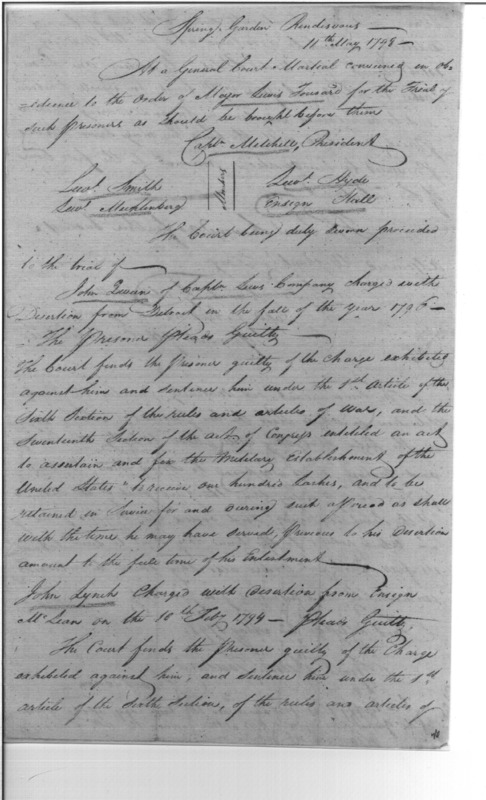 Spring Garden Rendezvous
11th May 1798 —
At a General Court Martial convened in obe
dience to the order of Major Lewis Tousard for the Trial of
such prisoners as should be brought before them
Captn Mitchell, President
Lieut. Smith
Members
Lieut. Hyde
Lieut. Mecklenberg
Ensign Hall
The Court being duly sworn proceeded
to the trial of
John of Captn Lewis Company charged with
Desertion from Detroit in the fall of the year 1796 —
The Prisoner Pleads Guilty
The Court finds the prisoner guilty of the charge exhibited
against him and sentence him under the 1st article of the
Sixth Section of the rules and articles of war, and the
Seventeenth Section of the act of Congress entitled an act
to ascertain and fix the Military establishment of the
United States to receive one hundred lashes, and to be
retained in Service for and during such a period as shall
with the time he may have served, previous to his desertion
amount to the full time of his Enlistment
John Lynch Charged with desertion from Ensign
McLean on the 10th Feby 1794 — Pleads Guilty.
The Court finds the Prisoner guilty of the Charge
exhibited against him, and sentence him under the 1st
article of the Sixth Section, of the rules and articles of